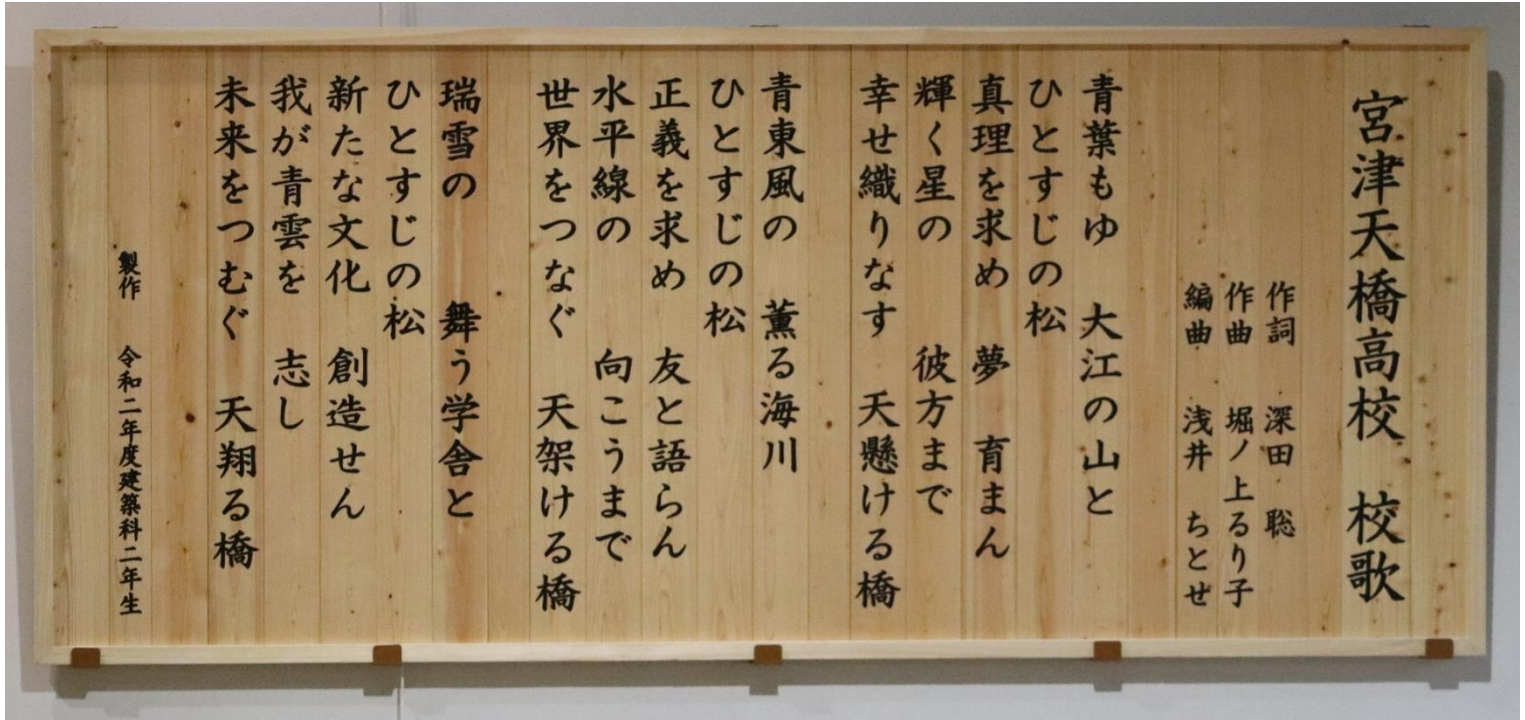 宮津天橋高校　校歌
作詞　深田　聡
作曲　堀ノ上るり子
編曲　浅井　ちとせ
青葉もゆ　大江の山と
ひとすじの松
真理を求め　夢　育まん
輝く星の　彼方まで
幸せ織りなす　天懸ける橋
青東風の　薫る海川
ひとすじの松
正義を求め　友と語らん
水平線の　向こうまで
世界をつなぐ　天架ける橋
瑞雪の　舞う学舎と
ひとすじの松
新たな文化　創造せん
我が青雲を　志し
未来をつむぐ　天翔る橋
製作　令和二年度建築科二年生